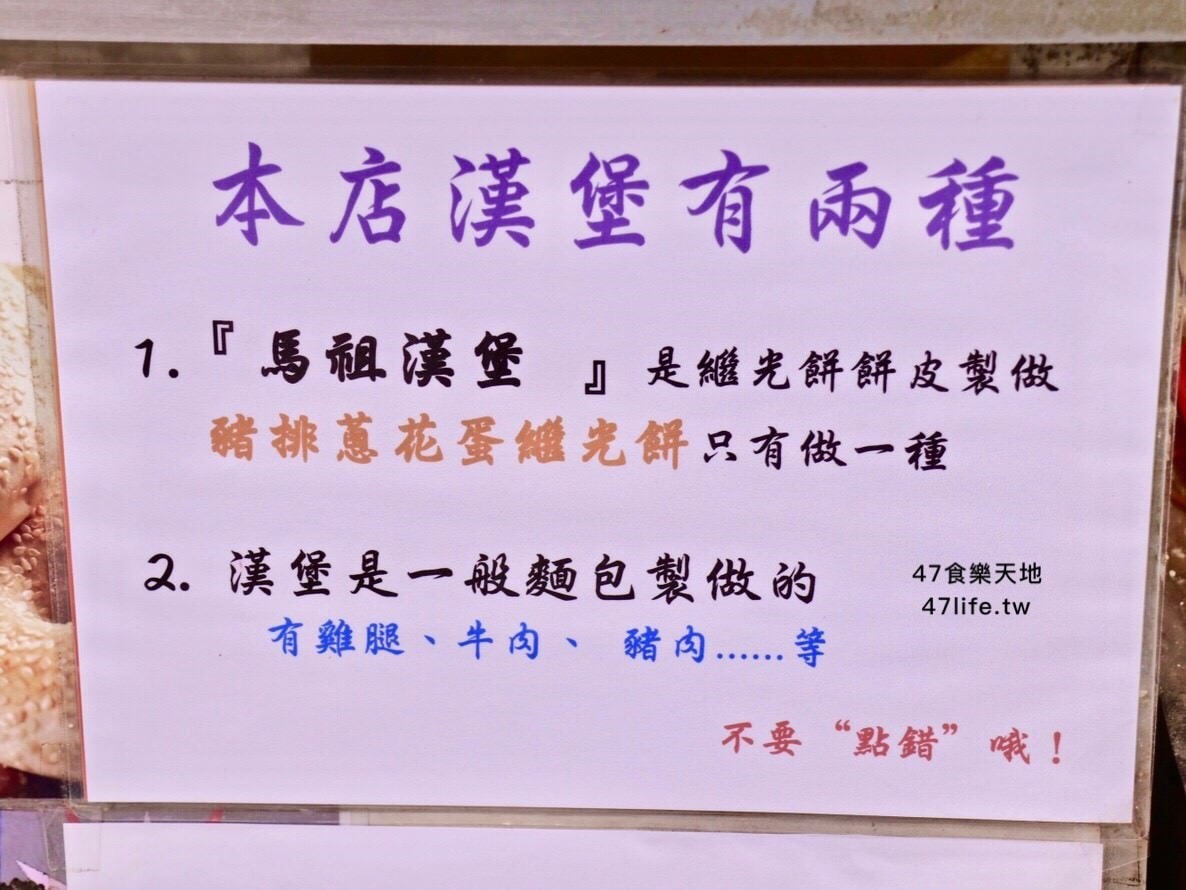 本店漢堡有兩種
1.『馬祖漢堡 』是繼光餅餅皮製做
豬排蔥花蛋繼光餅只有做一種
2. 漢堡是一般麵包製做的
有雞腿、牛肉、 豬肉......等
47食樂天地
47life.tw
不要“點錯”哦！